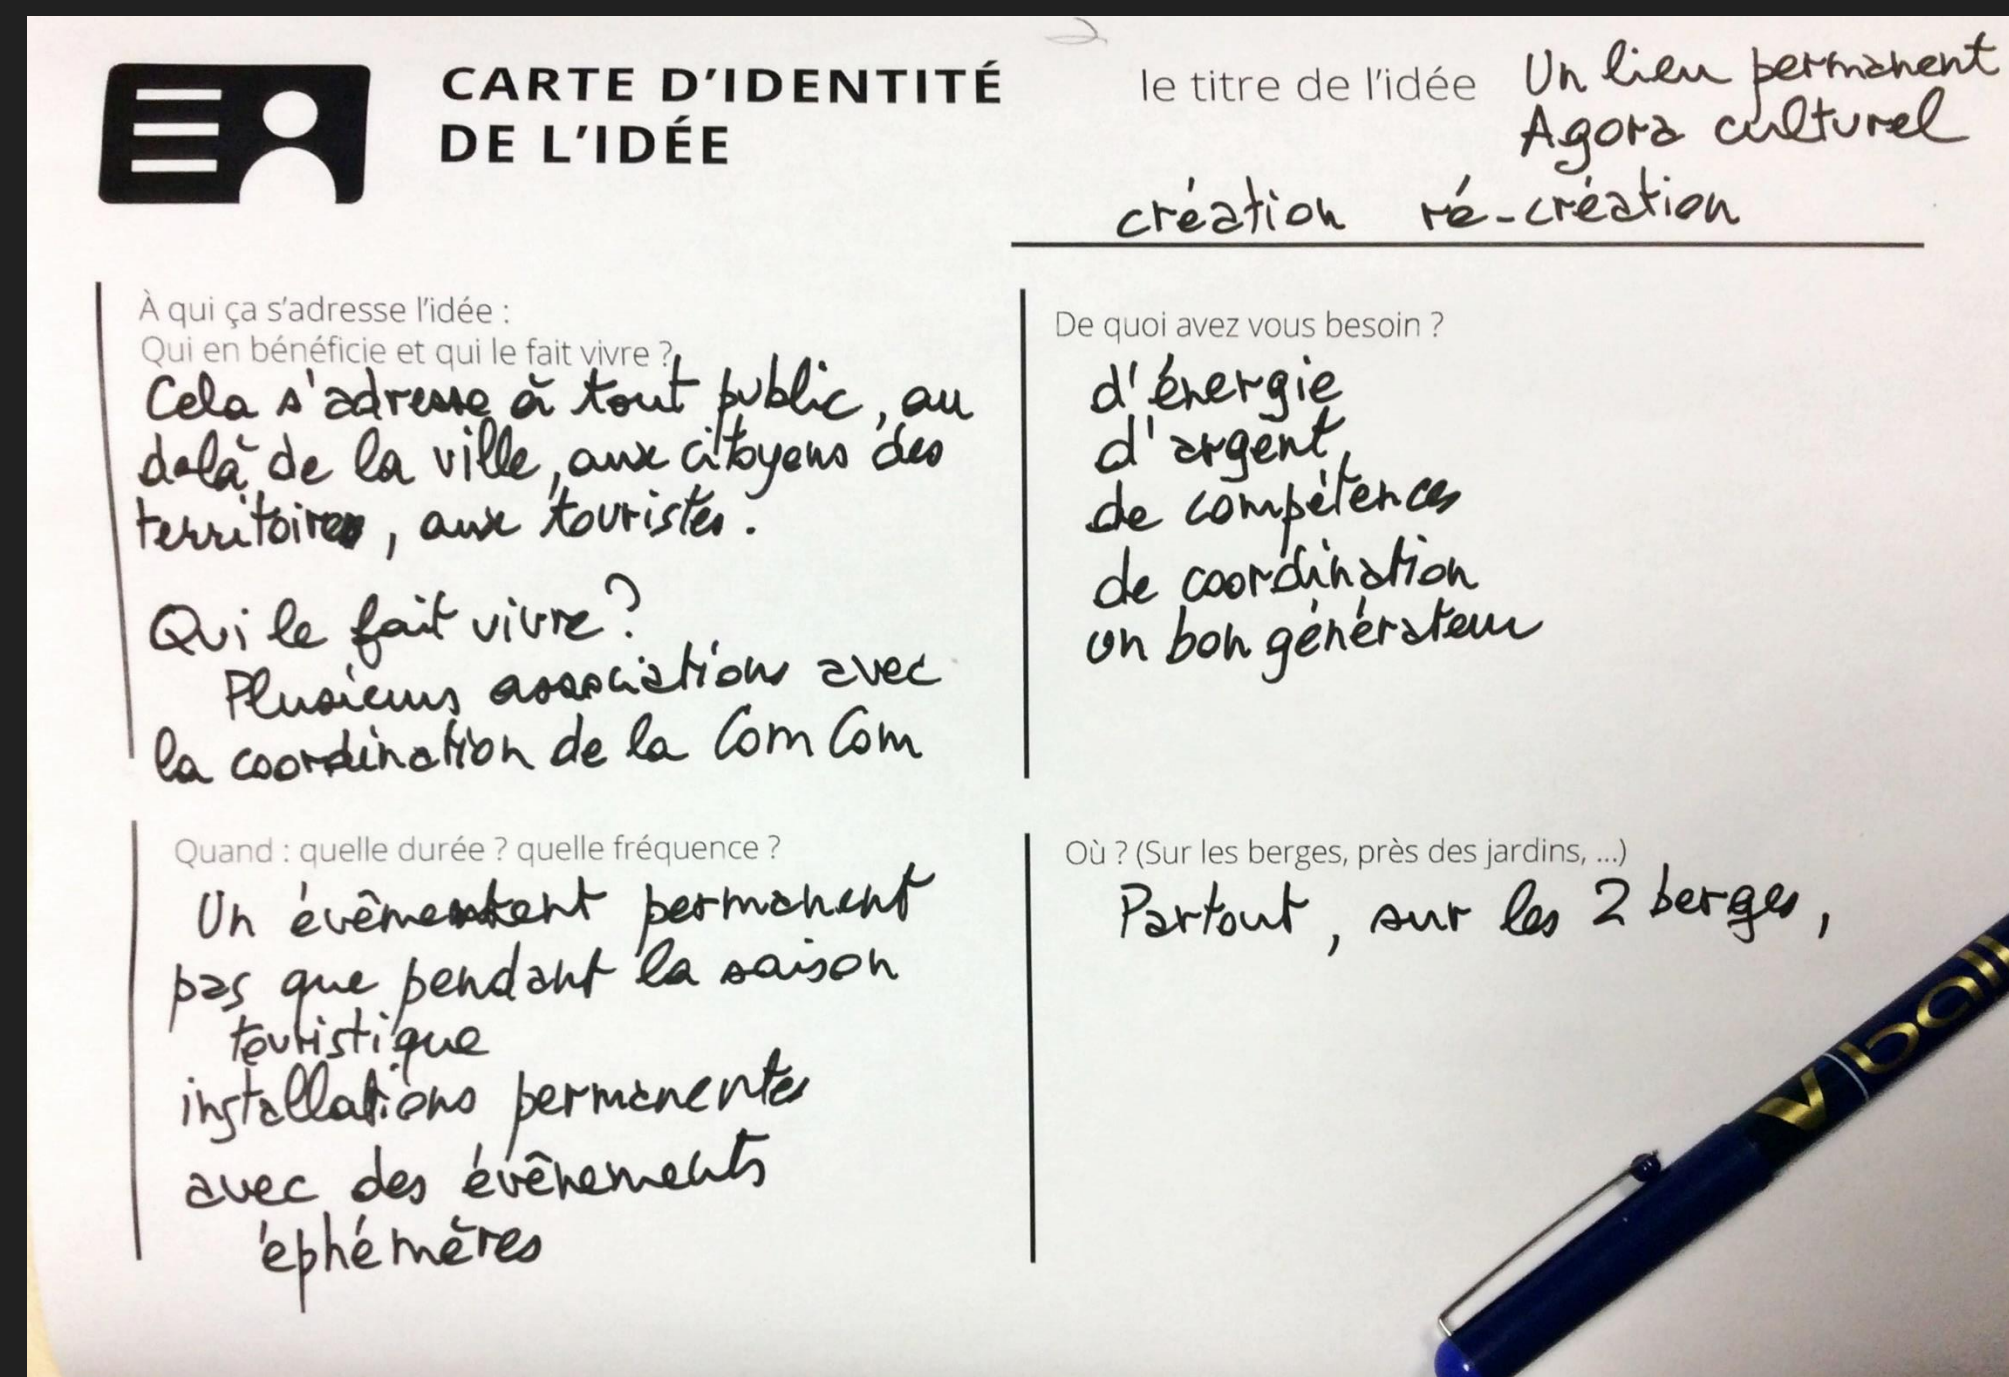 CARTE D'IDENTITÉ
DE L'IDÉE
le titre de l'idée Un lieu permanent
Agora culturel
création ré-création
À qui ça s'adresse l'idée :
Qui en bénéficie et qui le fait vivre ?
Cela s'adresse à tout public, au
delà de la ville, aux citoyens des
territoires, aux touristes.
Qui le fait vivre ?
Plusieurs associations avec
la coordination de la Com Com
De quoi avez vous besoin ?
d'énergie
d'argent,
de compétences
de coordination
un bon générateur
Quand : quelle durée ? quelle fréquence ?
Un évênement permanent
pas que pendant la saison
touristique
installations permanentes
avec des évênements
éphémères
Où ? (Sur les berges, près des jardins, ...)
Partout, sur les 2 berges,
V ball